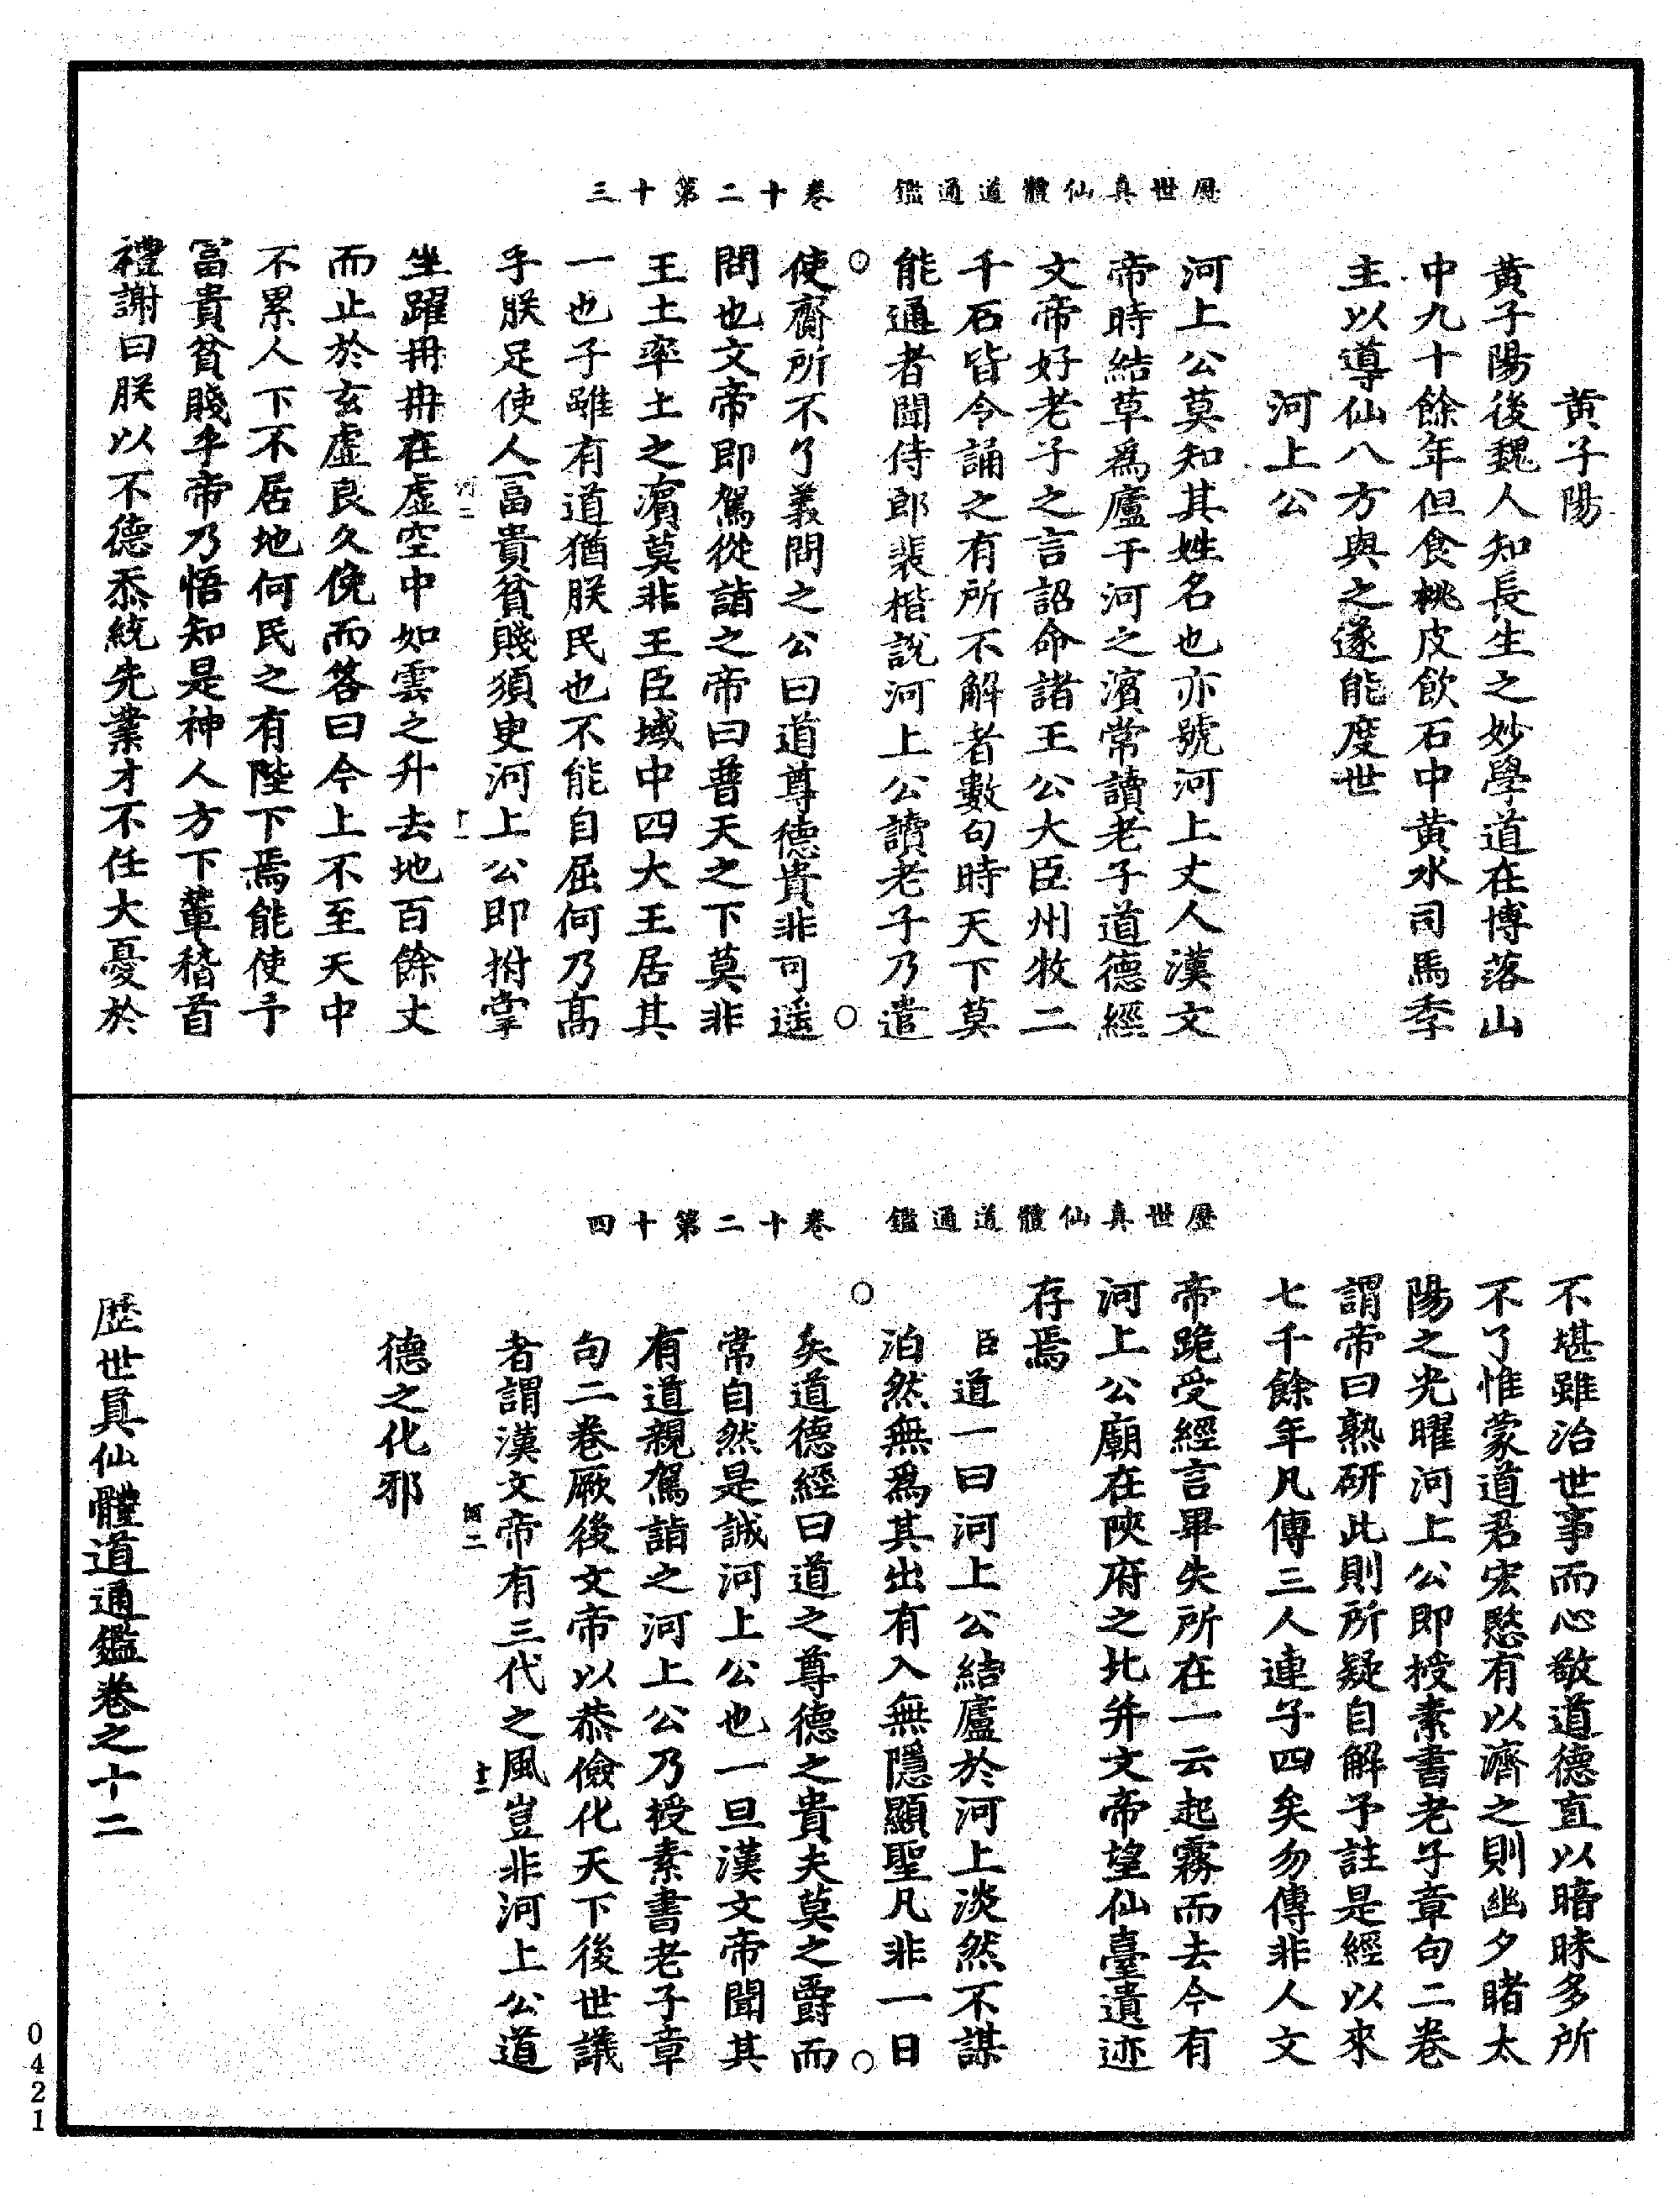 歷世真仙體道通鑑　卷十二第十三
黃子陽
黃子陽後魏人知長生之妙學道在博落山
中九十餘年但食桃皮飲石中黃水司馬季
主以導仙八方與之遂能度世
河上公
河上公莫知其姓名也亦號河上丈人漢文
帝時結草爲廬于河之濱常讀老子道德經
文帝好老子之言詔命諸王公大臣州牧二
千石皆令誦之有所不解者數句時天下莫
能通者聞侍郎裴楷說河上公讀老子乃遣
使齎所不了義問之公曰道尊德貴非可遥
問也文帝即駕從詣之帝曰普天之下莫非
王土率土之濵莫非王臣域中四大王居其
一也子雖有道猶朕民也不能自屈何乃髙
乎朕足使人富貴貧賤須臾河上公即拊掌
坐躍冉冉在虛空中如雲之升去地百餘丈
而止於玄虛良久俛而答曰今上不至天中
不累人下不居地何民之有陛下焉能使予
冨貴貧賤乎帝乃悟知是神人方下輦稽首
禮謝曰朕以不德忝統先業才不任大憂於
歷世真仙體道通鑑　卷十二第十四
不堪雖治世事而心敬道德直以暗昧多所
不了惟蒙道君宏愍有以濟之則幽夕睹太
陽之光曜河上公即授素書老子章句二卷
謂帝曰熟研此則所疑自解予註是經以來
七千餘年凡傳三人連子四矣勿傳非人文
帝跪受經言畢失所在一云起霧而去今有
河上公廟在陝府之北并文帝望仙臺遺迹
存焉
臣道一曰河上公結廬於河上淡然不謀
泊然無爲其出有入無隱顯聖凡非一日
矣道德經曰道之尊德之貴夫莫之爵而
常自然是誠河上公也一旦漢文帝聞其
有道親駕詣之河上公乃授素書老子章
句二卷厥後文帝以恭儉化天下後世議
者謂漢文帝有三代之風豈非河上公道
河二　十二
德之化邪
歷世真仙體道通鑑卷之十二
0421